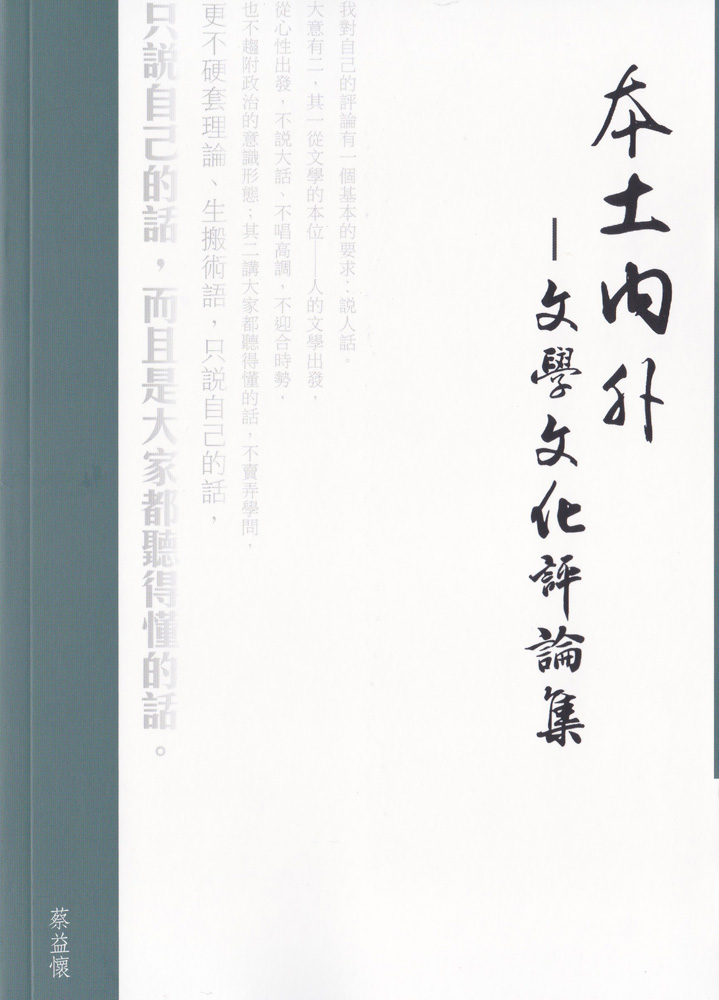 本土內外
—文學文化評論集
我對自己的評論有一個基本的要求：說人話。
大意有二，其一從文學的本位——人的文學出發，
從心性出發，不說大話、不唱高調，不迎合時勢，
也不趨附政治的意識形態；其二講大家都聽得懂的話，不賣弄學問，
更不硬套理論、生搬術語，只說自己的話，
只說自己的話，而且是大家都聽得懂的話。
蔡益懷